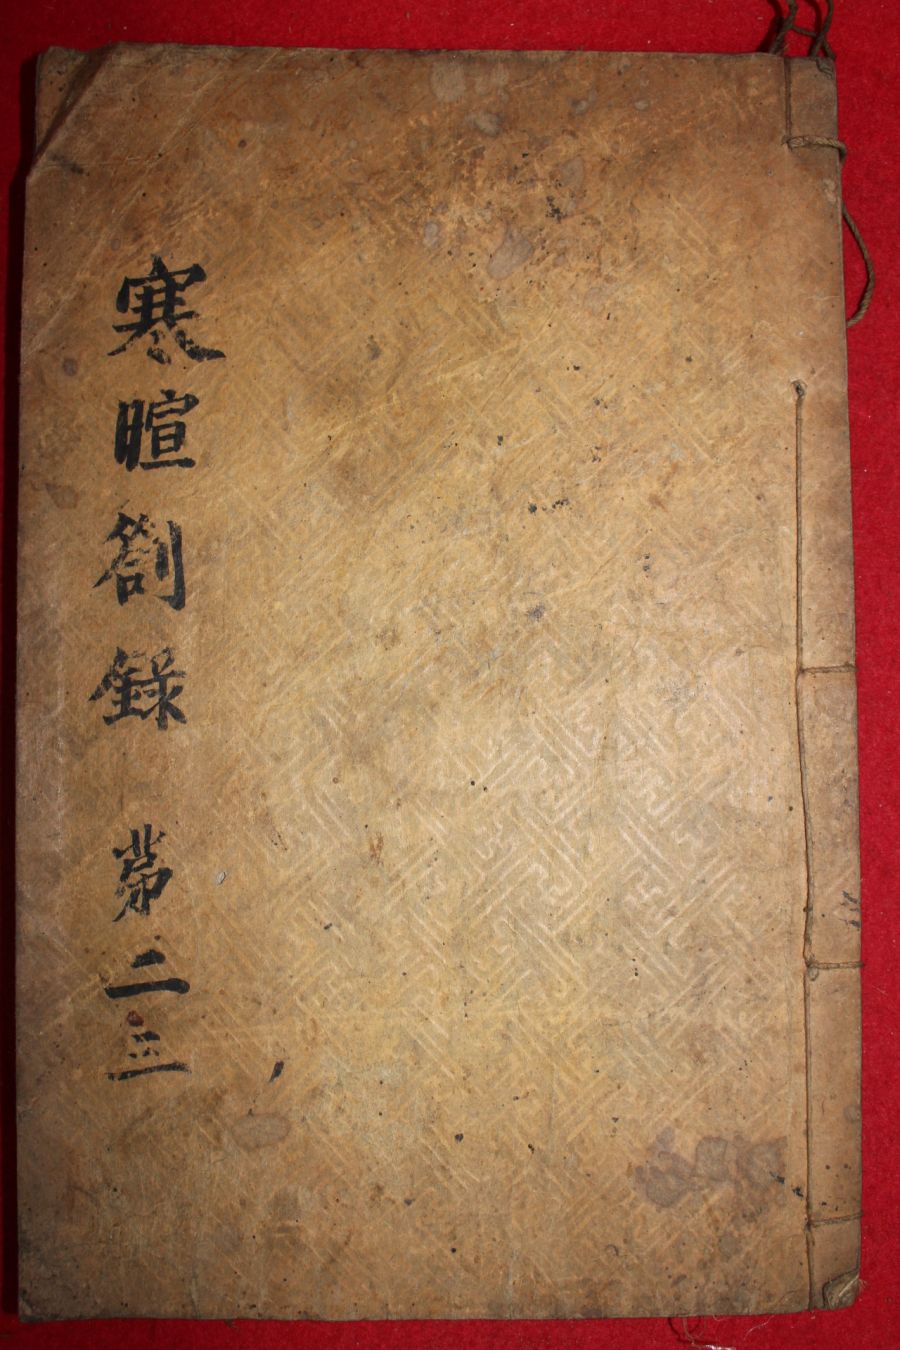 寒暄劄録 第二三